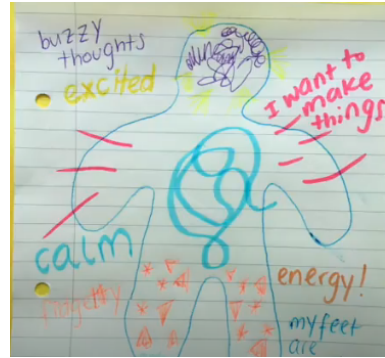 buzzy
thoughts
excited
I want to
make
things
calm
energy!
my feet
are